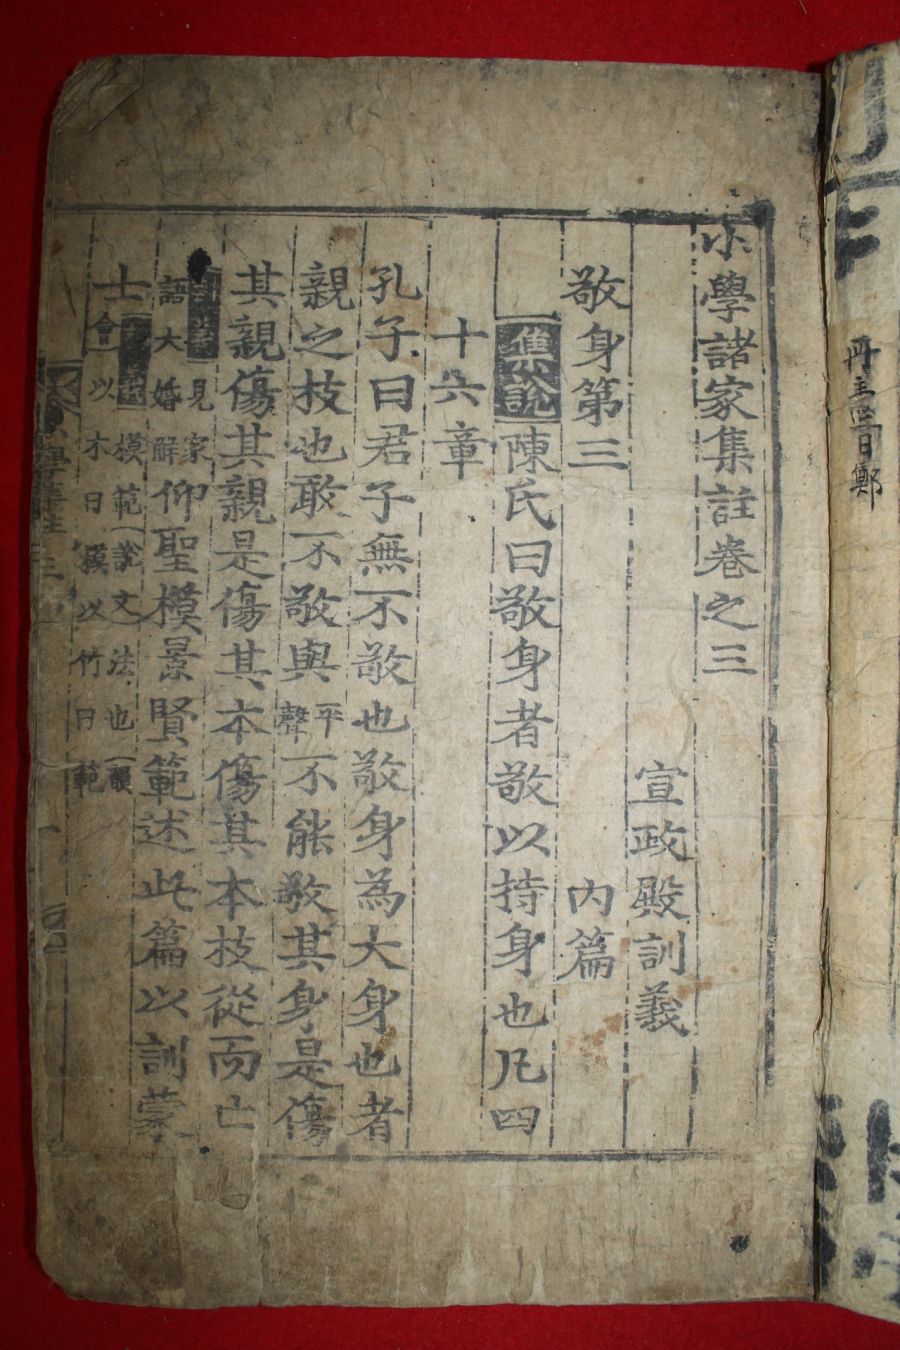 小學諸家集註卷之三
宣政殿訓義
敬身第三　內篇
集說 陳氏曰敬身者敬以持身也凡四
十六章
孔子曰君子無不敬也敬身為大身也者
親之枝也敢不敬與 平聲 不能敬其身是傷
其親傷其親是傷其本傷其本枝從而亡
見家語大婚解 仰聖模景賢範述此篇以訓蒙
士 模範 說文法也 韻會以木曰模以竹曰範